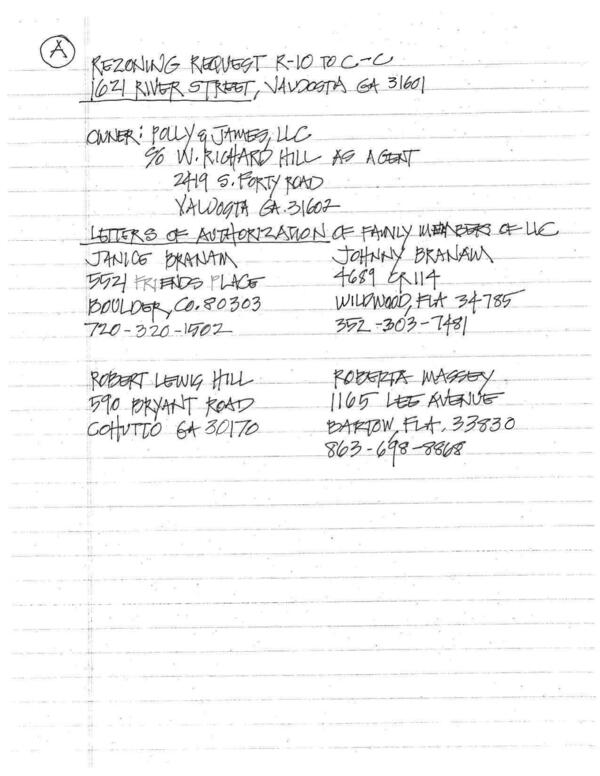 A
REZONING REQUEST R-10 TO C-C
1621 RIVER STREET, VALDOSTA GA 31601
OWNER: POLLY & JAMES, LLC
c/o W. RICHARD HILL AS AGENT
2419 S. FORTY ROAD
VALDOSTA GA. 31602
LETTERS OF AUTHORIZATION OF FAMILY MEMBERS OF LLC
JANICE BRANAM
5521 FRIENDS PLACE
BOULDER, CO. 80303
720-320-1502
JOHNNY BRANAM
4689 CR 114
WILDWOOD, FLA 34785
352-303-7481
ROBERT LEWIS HILL
590 BRYANT ROAD
COHUTTO GA 30170
ROBERTA MASSEY
1165 LEE AVENUE
BARTOW, FLA. 33830
863-698-8868